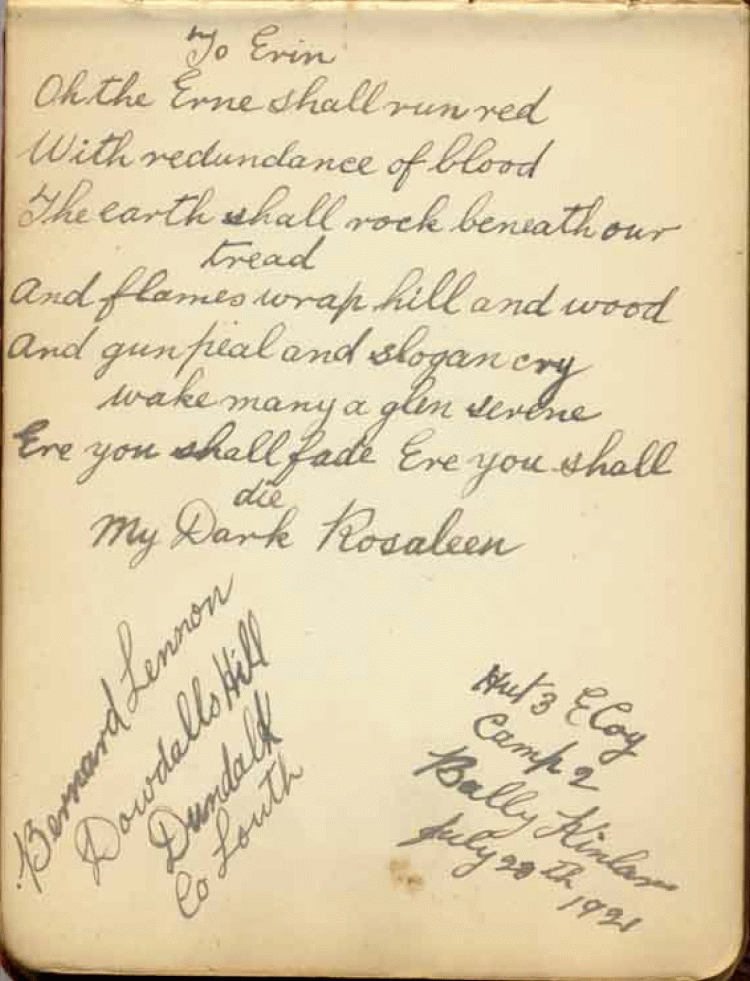 To Erin
Oh the Erne shall run red
With redundance of blood
The earth shall rock beneath our
tread
And flames wrap hill and wood
And gun peal and slogan cry
wake many a glen serene
Ere you shall fade Ere you shall
die
My Dark Rosaleen
Bernard Lennon
Dowdalls Hill
Dundalk
Co Louth
Hut 3 E Coy
Camp 2
Bally Kinlar
July 28th
1921